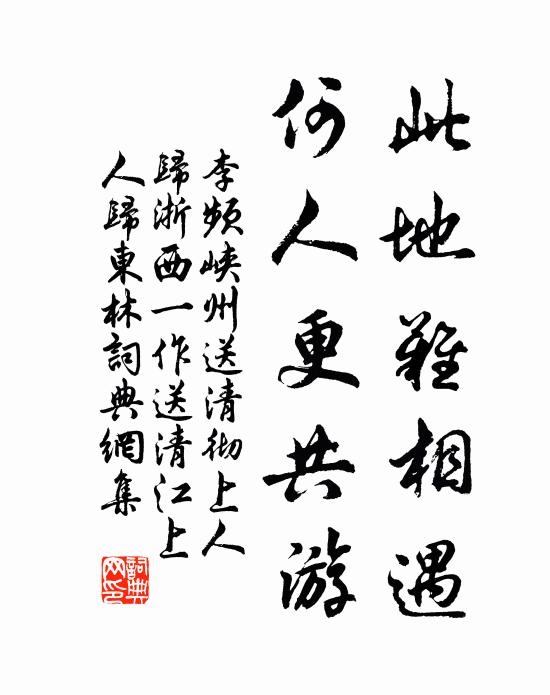 此地難相遇
何人更共游
李频峡州送清彻上人
歸浙西一作送清江上
人歸東林詞典網集
詞典
网印